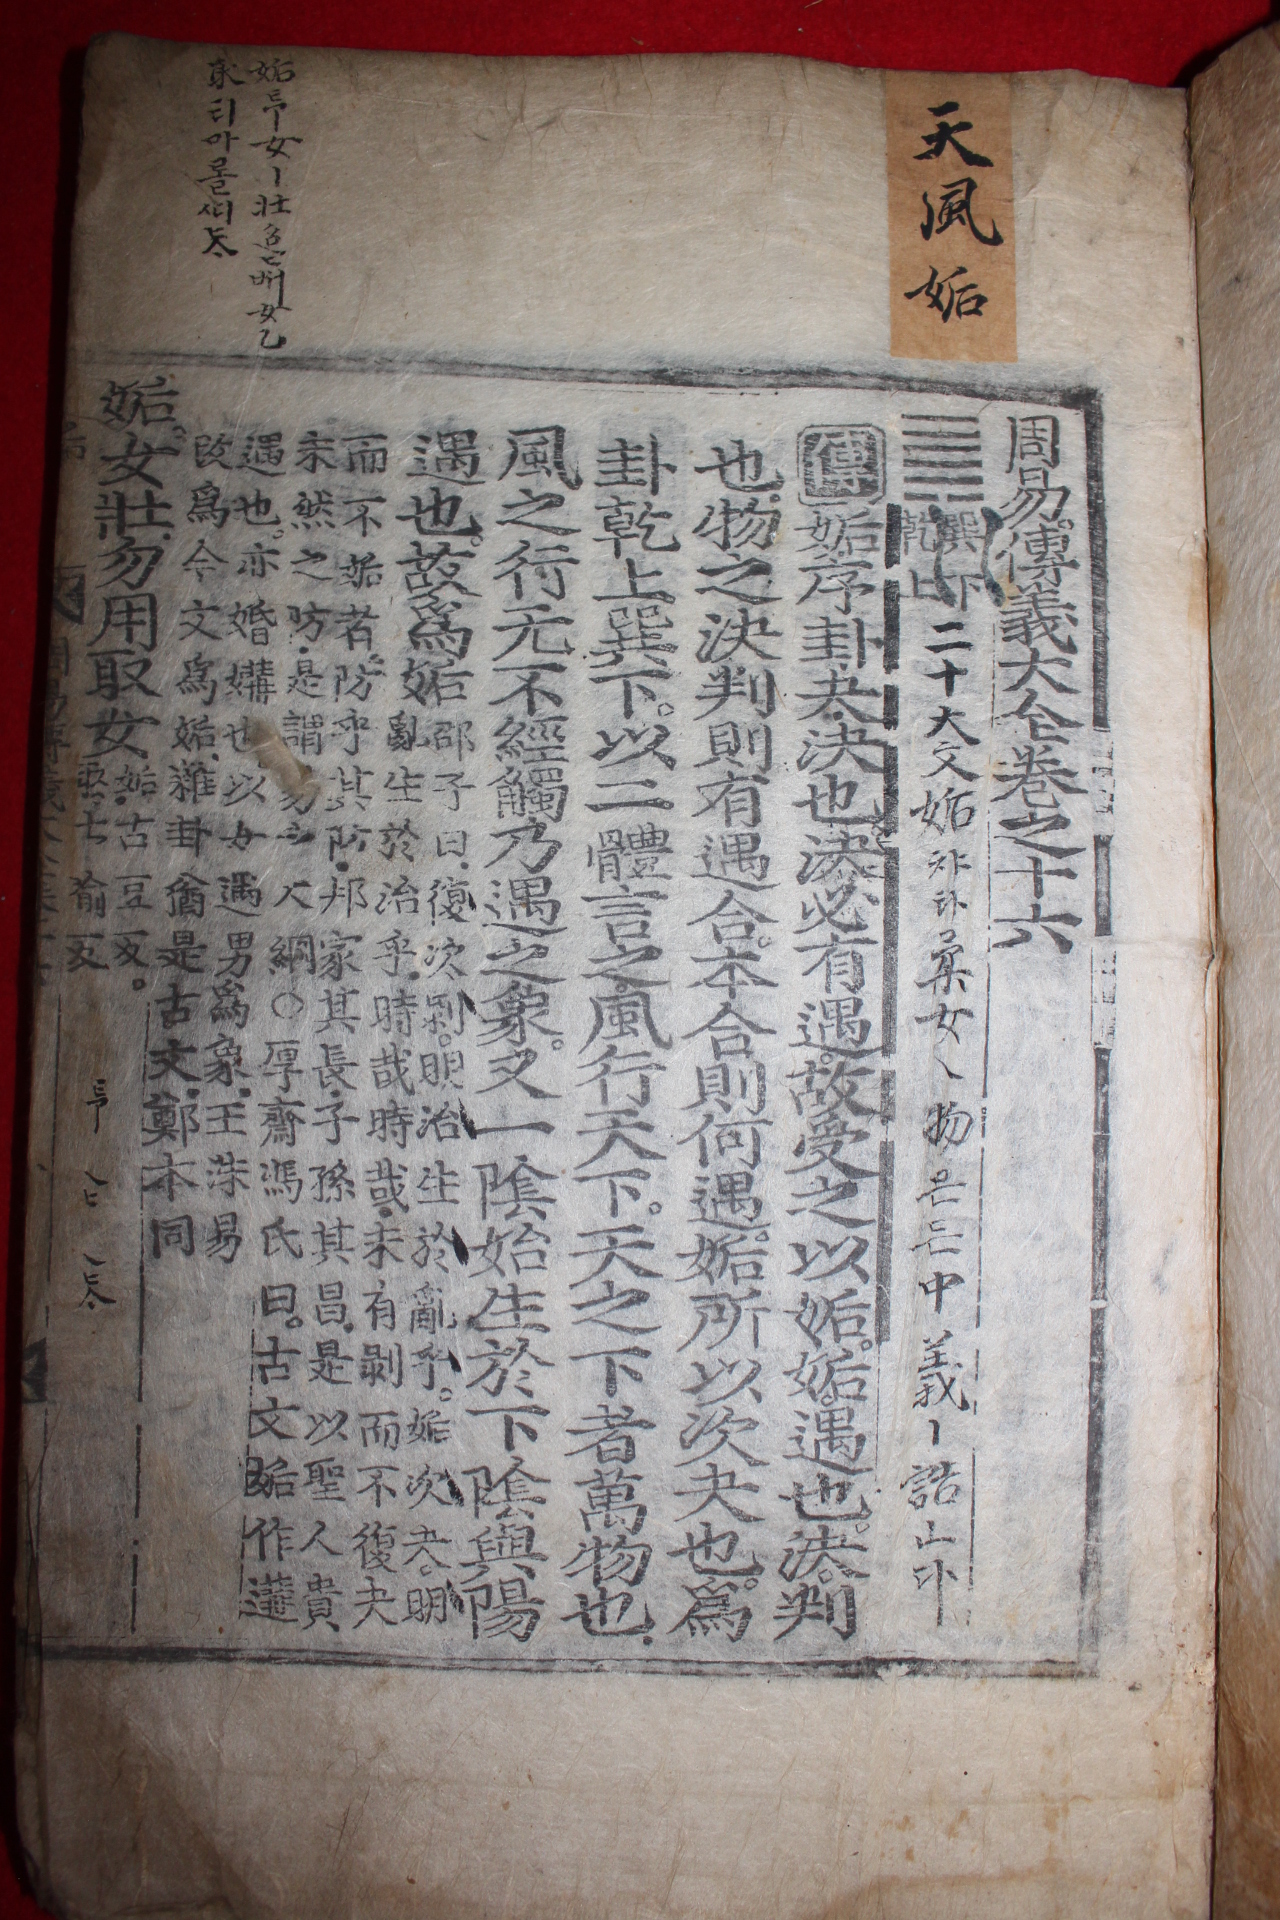 天風姤
周易傳義大全卷之十六
巽下
乾上
二十大文姤
傳姤序卦夬決也決必有遇故受之以姤姤遇也決判
也物之決判則有遇合本合則何遇姤所以次夬也爲
卦乾上巽下以二體言之風行天下天之下者萬物也
風之行无不經觸乃遇之象又一陰始生於下陰與陽
遇也故爲姤
邵子曰復次剝明治生於亂乎姤次夬明
亂生於治乎時哉時哉未有剝而不復夬
而不姤者防乎其防邦家其長子孫其昌是以聖人貴
未然之防是謂易之大綱○厚齋馮氏曰古文姤作遘
遇也亦婚媾也以女遇男爲象王洙易
改爲今文爲姤雜卦猶是古文鄭本同
姤女壯勿用取女
姤古豆反
取七喩反
姤
女
壯
女乙
取